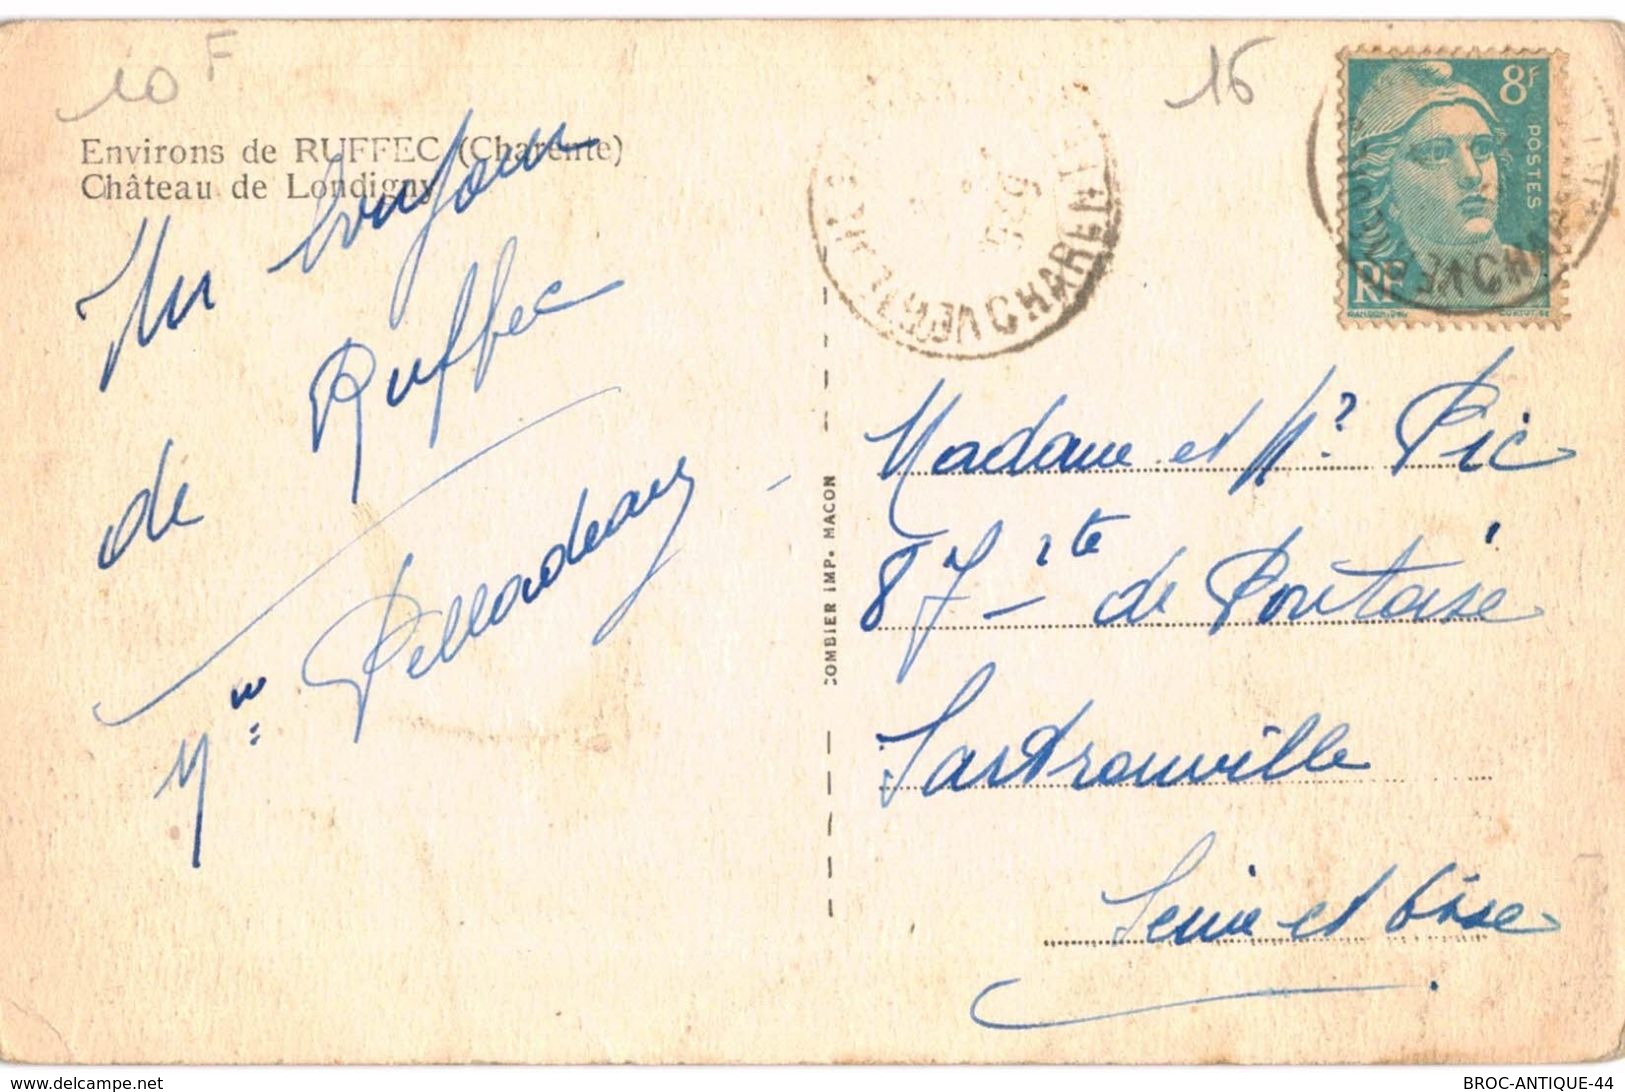 10 F
16
Environs de RUFFEC (Charente)
Château de Londigny
Un bonjour
de Ruffec
Mme
8F
POSTES
RF
CHARENTE
1949
COMBIER IMP. MACON
Madame et Mr Pic
87 - rte de Pontoise
Sartrouville
Seine et Oise
www.delcampe.net
BROC-ANTIQUE-44